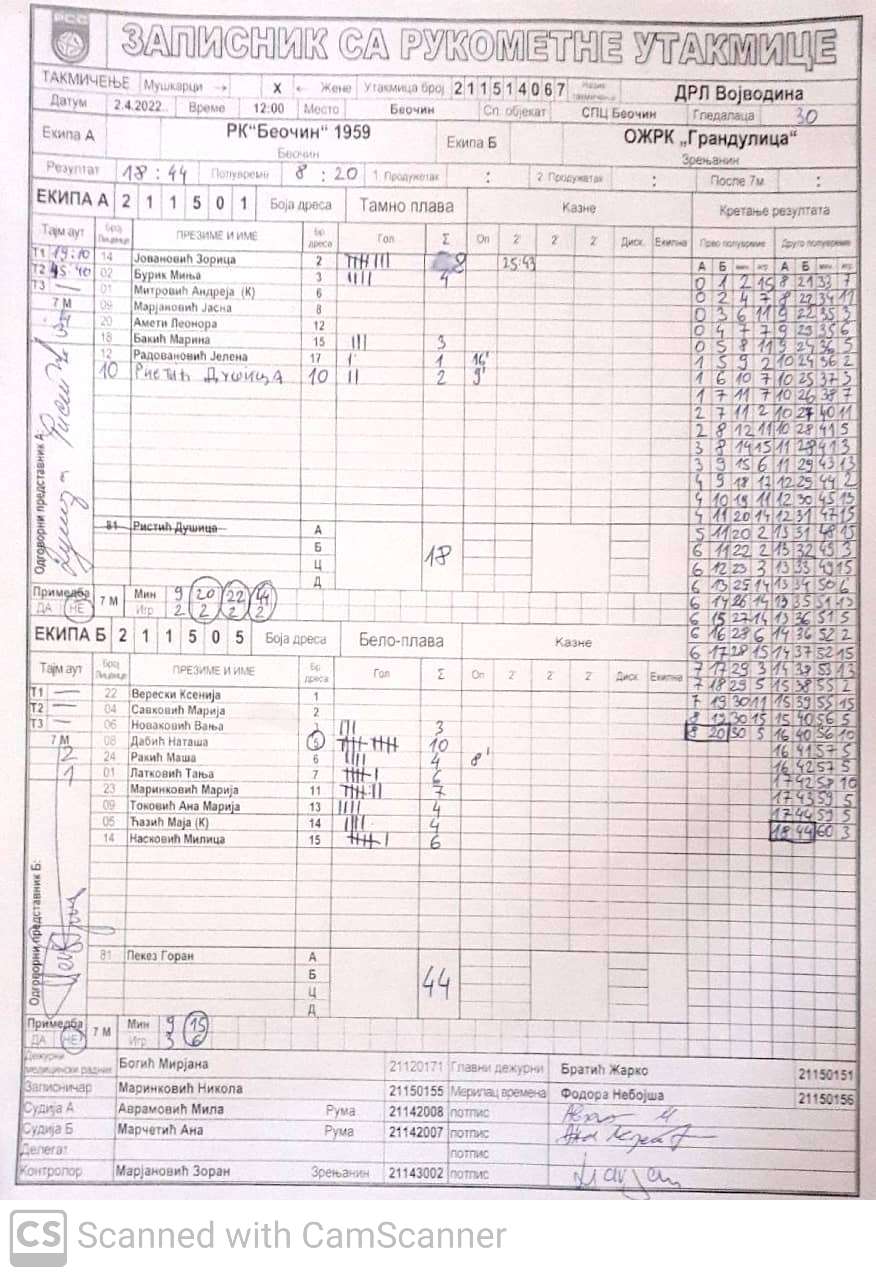 РСС
ЗАПИСНИК СА РУКОМЕТНЕ УТАКМИЦЕ
ТАКМИЧЕЊЕ Мушкарци → X ← Жене Утакмица број 211514067 ДРЛ Војводина
Датум 2.4.2022. Време 12:00 Место Беочин Сп. објекат СПЦ Беочин Гледалаца 30
Екипа А РК"Беочин" 1959 Беочин Екипа Б ОЖРК „Грандулица“ Зрењанин
Резултат 18 : 44 Полувреме 8 : 20 1. Продужетак : 2. Продужетак : После 7м :
ЕКИПА А 2 1 1 5 0 1 Боја дреса Тамно плава Казне Кретање резултата
Тајм аут Број Лиценце ПРЕЗИМЕ И ИМЕ Бр дреса Гол Σ Оп 2' 2' 2' Диск. Екипна Прво полувреме Друго полувреме
А Б мин игр А Б мин игр
Т1 19:10 14 Јовановић Зорица 2 8 25:43
Т2 45:40 02 Бурик Миња 3 4
Т3 — 01 Митровић Андреја (К) 6
7 М 09 Марјановић Јасна 8
20 Амети Леонора 12
18 Бакић Марина 15 3
12 Радовановић Јелена 17 1 16'
10 Ристић Душица 10 2 9'
Одговорни представник А:
81 Ристић Душица А
Б 18
Ц
Д
Примедба ДА НЕ 7 М Мин 9 20 22 44
Игр 2 2 2 2
0 1 2 15 8 21 33 7
0 2 4 7 8 22 34 11
0 3 6 11 9 22 35 3
0 4 7 7 9 23 35 6
0 5 8 11 9 24 36 5
1 5 9 2 10 24 36 2
1 6 10 7 10 25 37 3
1 7 11 7 10 26 38 7
2 7 11 2 10 27 40 11
2 8 12 11 10 28 41 5
3 8 14 15 11 28 41 3
3 9 15 6 11 29 43 13
4 9 18 17 12 29 44 2
4 10 19 11 12 30 45 13
4 11 20 14 12 31 47 15
5 11 20 2 13 31 48 15
6 11 22 2 13 32 49 3
6 12 23 3 13 33 49 15
6 13 25 14 13 34 50 6
6 14 26 14 13 35 51 13
6 15 27 14 13 36 51 5
6 16 28 6 14 36 52 2
6 17 28 15 14 37 52 15
7 17 29 3 14 38 53 13
7 18 29 5 15 38 55 2
7 19 30 11 15 39 55 15
8 19 30 15 15 40 56 5
8 20 30 5 16 40 56 10
16 41 57 5
16 42 57 5
17 42 58 10
17 43 59 5
17 44 59 5
18 44 60 3
ЕКИПА Б 2 1 1 5 0 5 Боја дреса Бело-плава Казне
Тајм аут Број Лиценце ПРЕЗИМЕ И ИМЕ Бр. дреса Гол Σ Оп 2' 2' 2' Диск. Екипна
Т1 — 22 Верески Ксенија 1
Т2 — 04 Савковић Марија 2
Т3 — 06 Новаковић Вања 3 3
7 М 08 Дабић Наташа 5 10
2 24 Ракић Маша 6 4 8'
1 01 Латковић Тања 7 6
23 Маринковић Марија 11 7
09 Токовић Ана Марија 13 4
05 Ћазић Маја (К) 14 4
14 Насковић Милица 15 6
Одговорни представник Б:
81 Пекез Горан А
Б 44
Ц
Д
Примедба ДА НЕ 7 М Мин 9 15
Игр 3 6
Дежурни медицински радник Богић Мирјана 21120171 Главни дежурни Братић Жарко 21150151
Записничар Маринковић Никола 21150155 Мерилац времена Фодора Небојша 21150156
Судија А Аврамовић Мила Рума 21142008 потпис
Судија Б Марчетић Ана Рума 21142007 потпис
Делегат потпис
Контролор Марјановић Зоран Зрењанин 21143002 потпис
CS Scanned with CamScanner